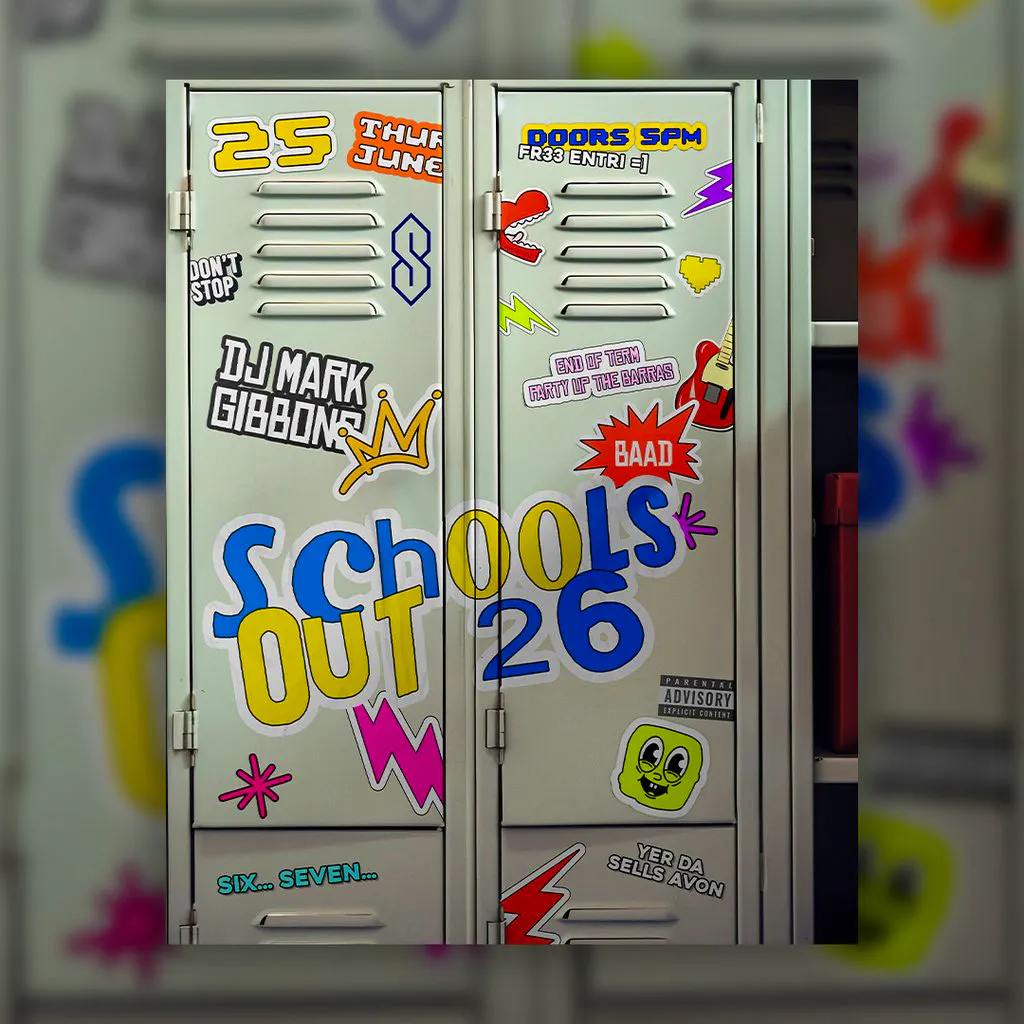 25
THUR
JUNE
DOORS 5PM
FR33 ENTRI =]
DON'T
STOP
DJ MARK
GIBBONS
END OF TERM
PARTY UP THE BARRAS
BAAD
SCHOOLS
OUT 26
PARENTAL
ADVISORY
EXPLICIT CONTENT
SIX... SEVEN...
YER DA
SELLS AVON